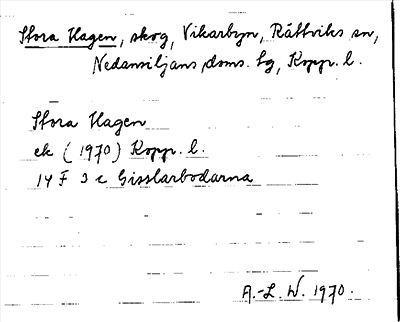 Stora Hagen, skog, Vikarbyn, Rättviks sn,
Nedansiljans doms. hg, Kopp. l.
Stora Hagen
ek (1970) Kopp. l.
14 F 3 c Gisslarbodarna
A.-L. W. 1970.